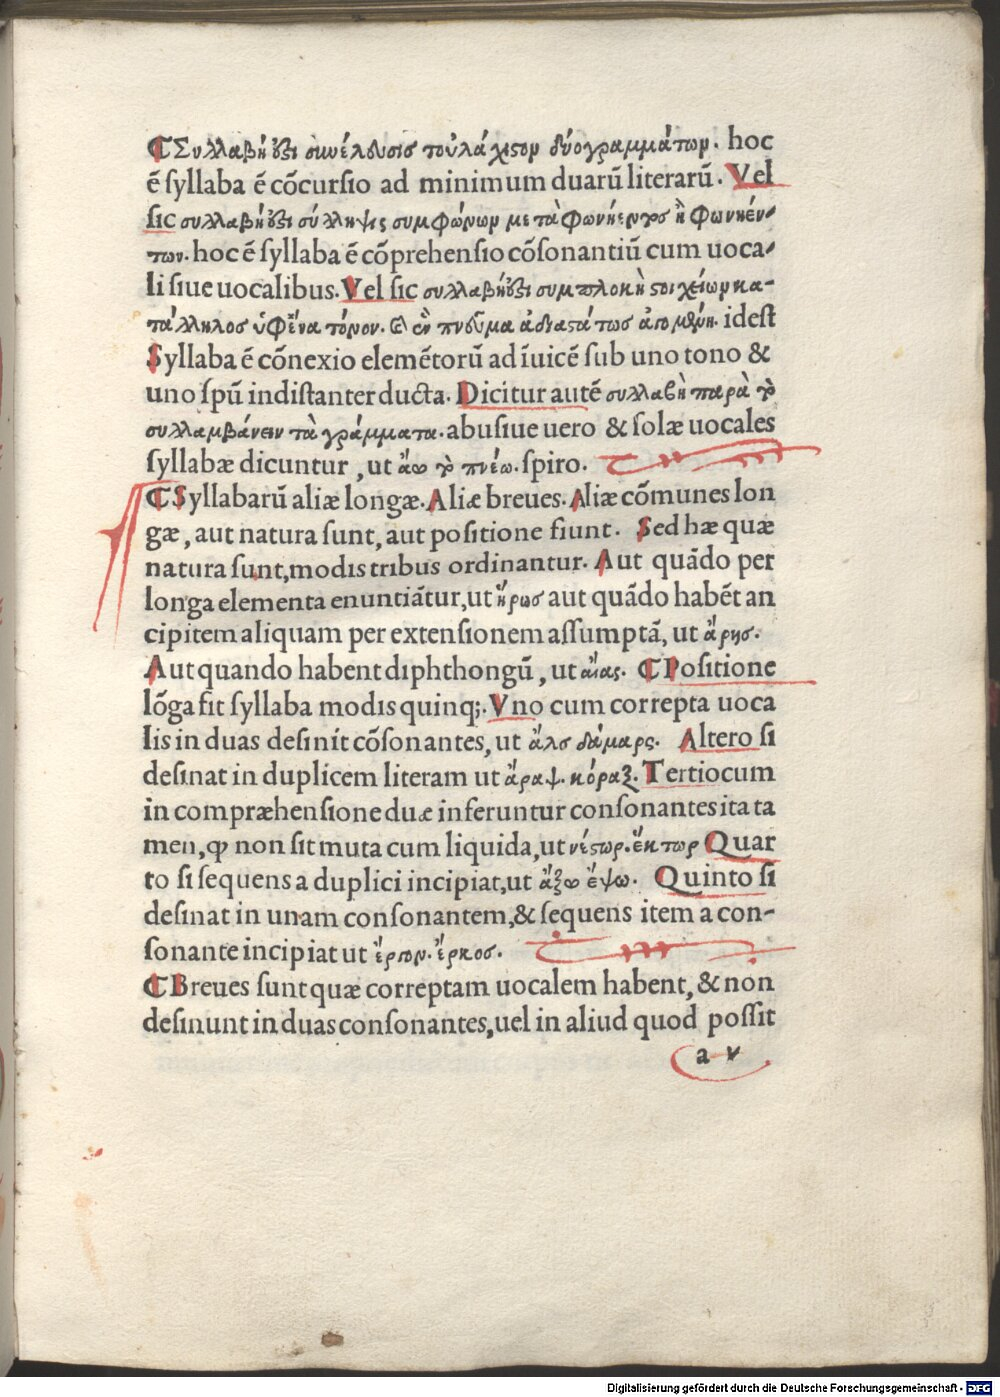 ¶Συλλαβή ἐστι συνέλευσις τοὐλάχιστον δύο γραμμάτων. hoc
ē ſyllaba ē cōcurſio ad minimum duarū literarū. Vel
ſic συλλαβή ἐστι σύλληψις συμφώνων μετὰ φωνήεντος ἢ φωνηέν-
των. hoc ē ſyllaba ē cōprehenſio cōſonantiū cum uoca-
li ſiue uocalibus. Vel ſic συλλαβή ἐστι συμπλοκὴ στοιχείων κα-
τάλληλος ὑφ' ἕνα τόνον. καὶ ἓν πνεῦμα ἀδιαστάτως idest
Syllaba ē cōnexio elemētorū ad īuicē ſub uno tono &
uno ſpū indiſtanter ducta. Dicitur autē συλλαβὴ παρὰ τὸ
συλλαμβάνειν τὰ γράμματα. abuſiue uero & ſolæ uocales
ſyllabæ dicuntur, ut ἄω τὸ πνέω. ſpiro.
¶Syllabarū aliæ longæ. Aliæ breues. Aliæ cōmunes lon
gæ, aut natura ſunt, aut poſitione fiunt. Sed hæ quæ
natura ſunt, modis tribus ordinantur. Aut quādo per
longa elementa enuntiātur, ut ἥρως aut quādo habēt an
cipitem aliquam per extenſionem aſſumptā, ut ἄρης.
Aut quando habent diphthongū, ut αἴας. ¶Poſitione
lōga fit ſyllaba modis quinq;. Vno cum correpta uoca
lis in duas deſinit cōſonantes, ut ἅλς δάμαρς. Altero ſi
deſinat in duplicem literam ut ἄραψ. κόραξ. Tertio cum
in compræhenſione duæ inferuntur conſonantes ita ta
men, ꝙ non ſit muta cum liquida, ut νέστωρ. ἕκτωρ Quar
to ſi ſequens a duplici incipiat, ut ἄξω ἕψω. Quinto ſi
deſinat in unam conſonantem, & ſequens item a con-
ſonante incipiat ut ἔργον. ἕρκος.
¶Breues ſunt quæ correptam uocalem habent, & non
deſinunt in duas conſonantes, uel in aliud quod poſſit
a v
Digitalisierung gefördert durch die Deutsche Forschungsgemeinschaft - DFG